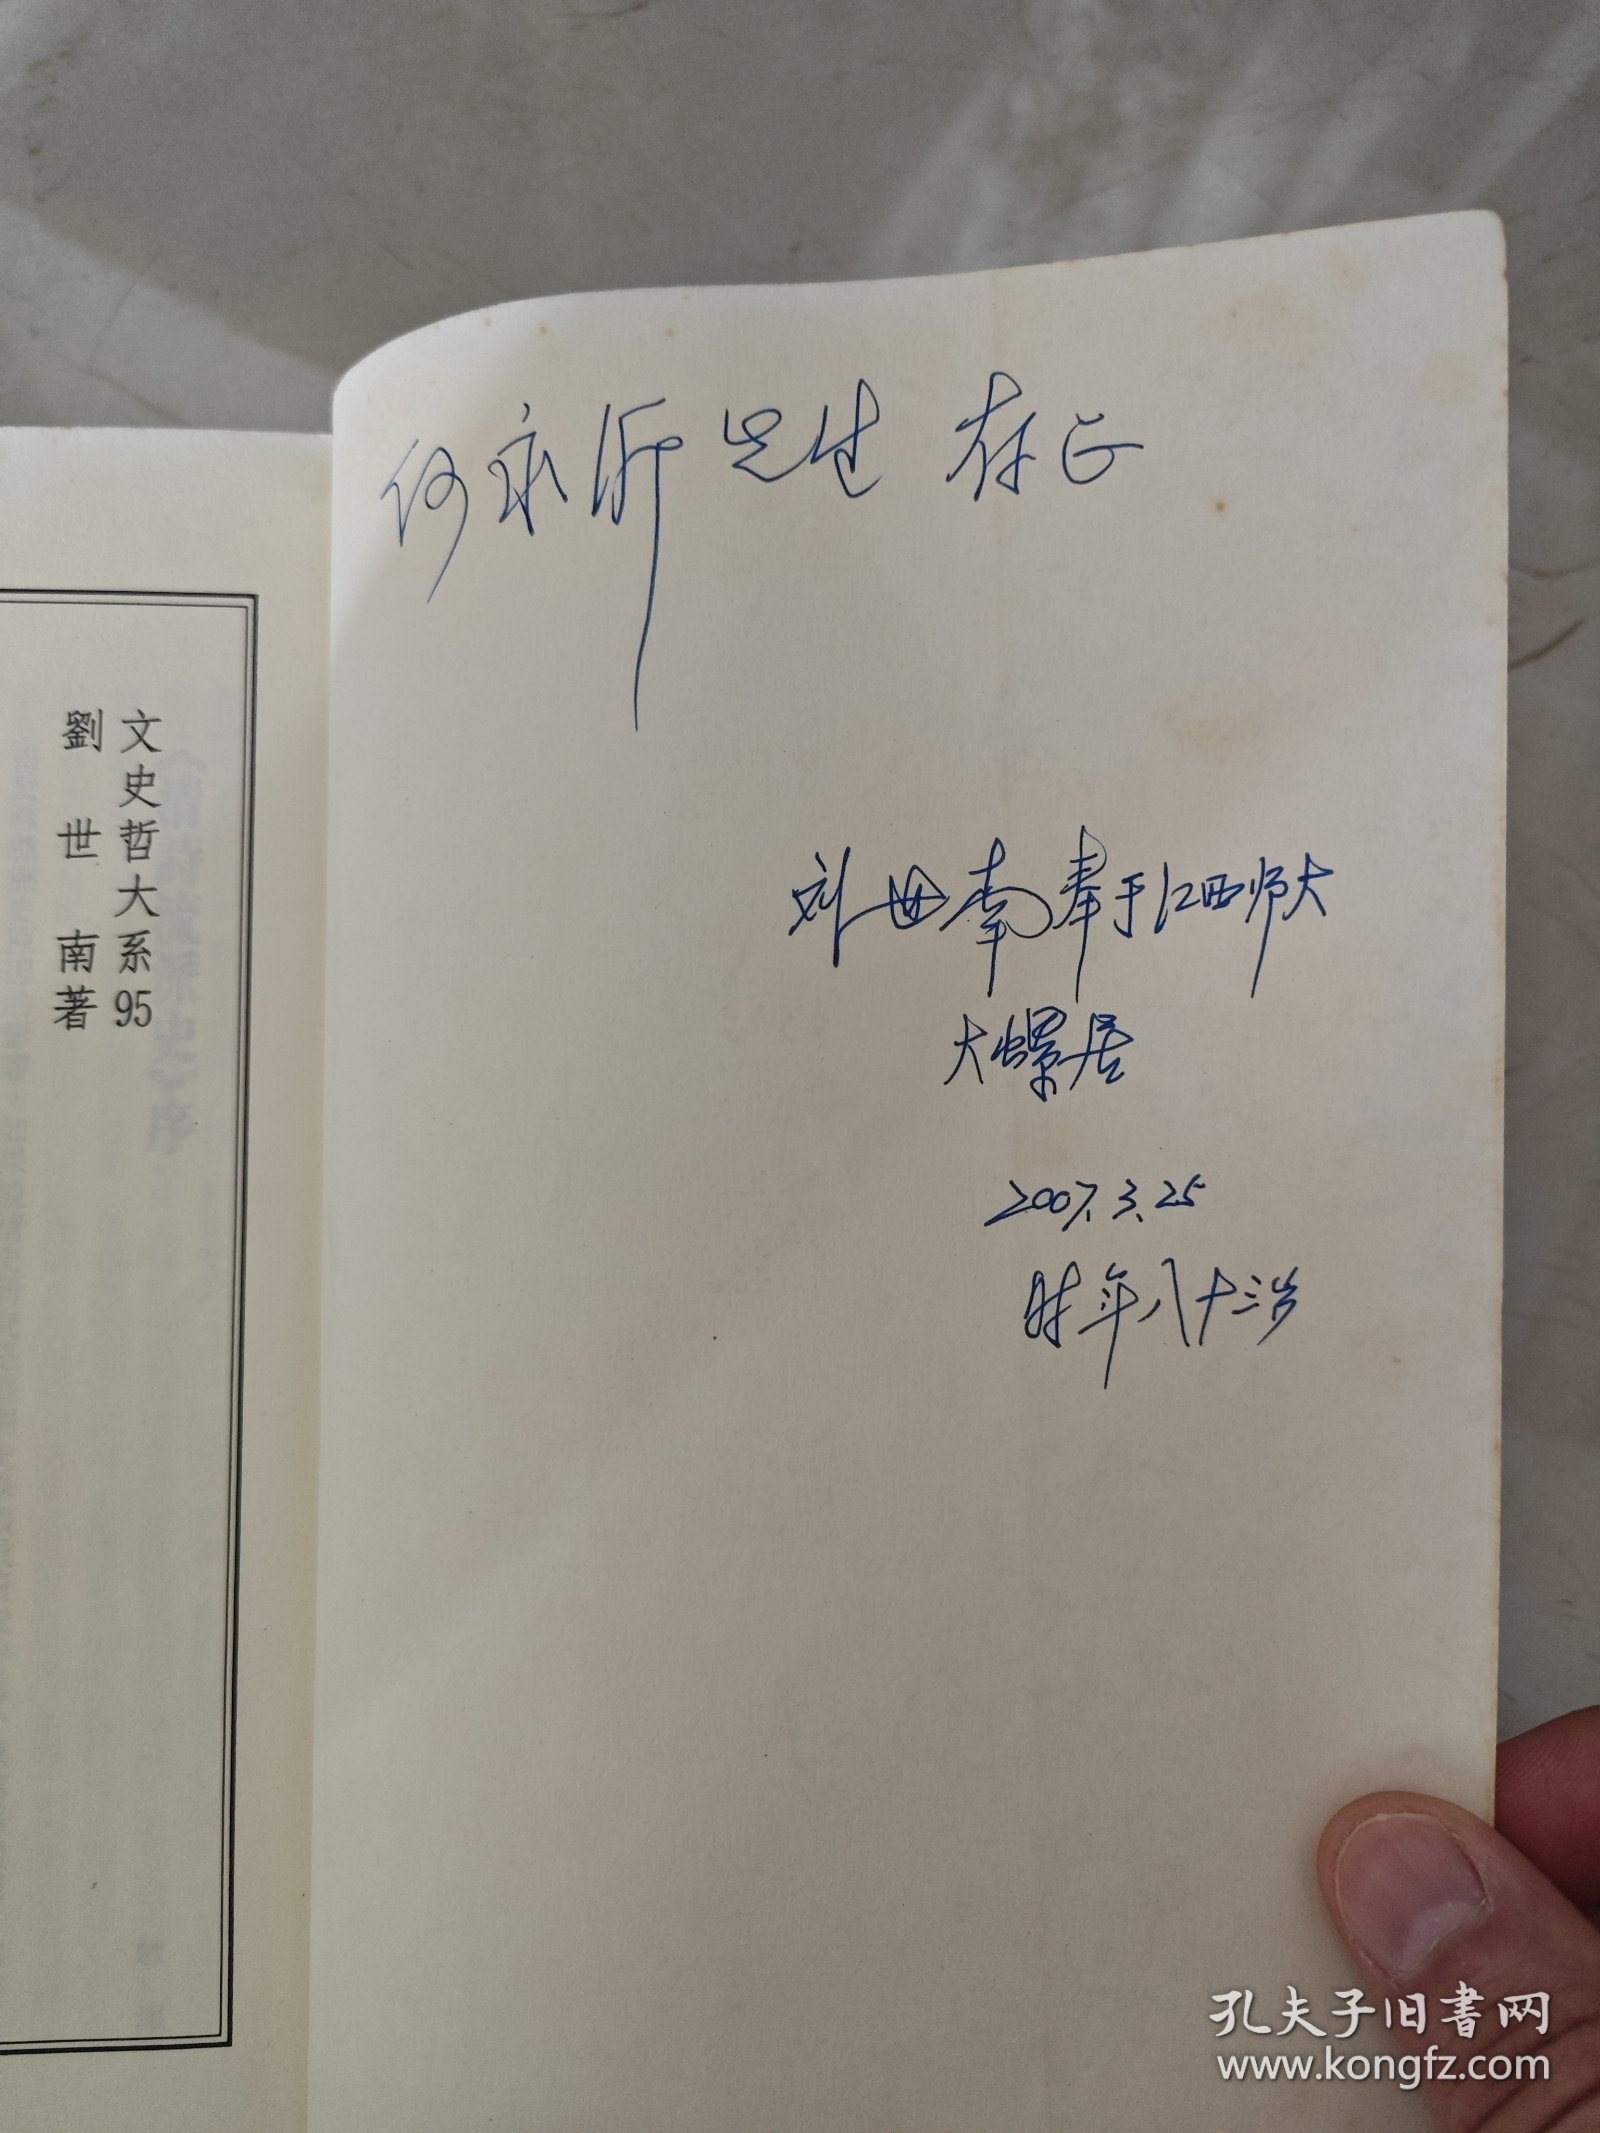 何永沂先生 存正
刘世南奉于江西师大
大螺居
2007.3.25
时年八十三岁
文史哲大系95
劉世南著
《清詩流派史》序
孔夫子旧书网
www.kongfz.com